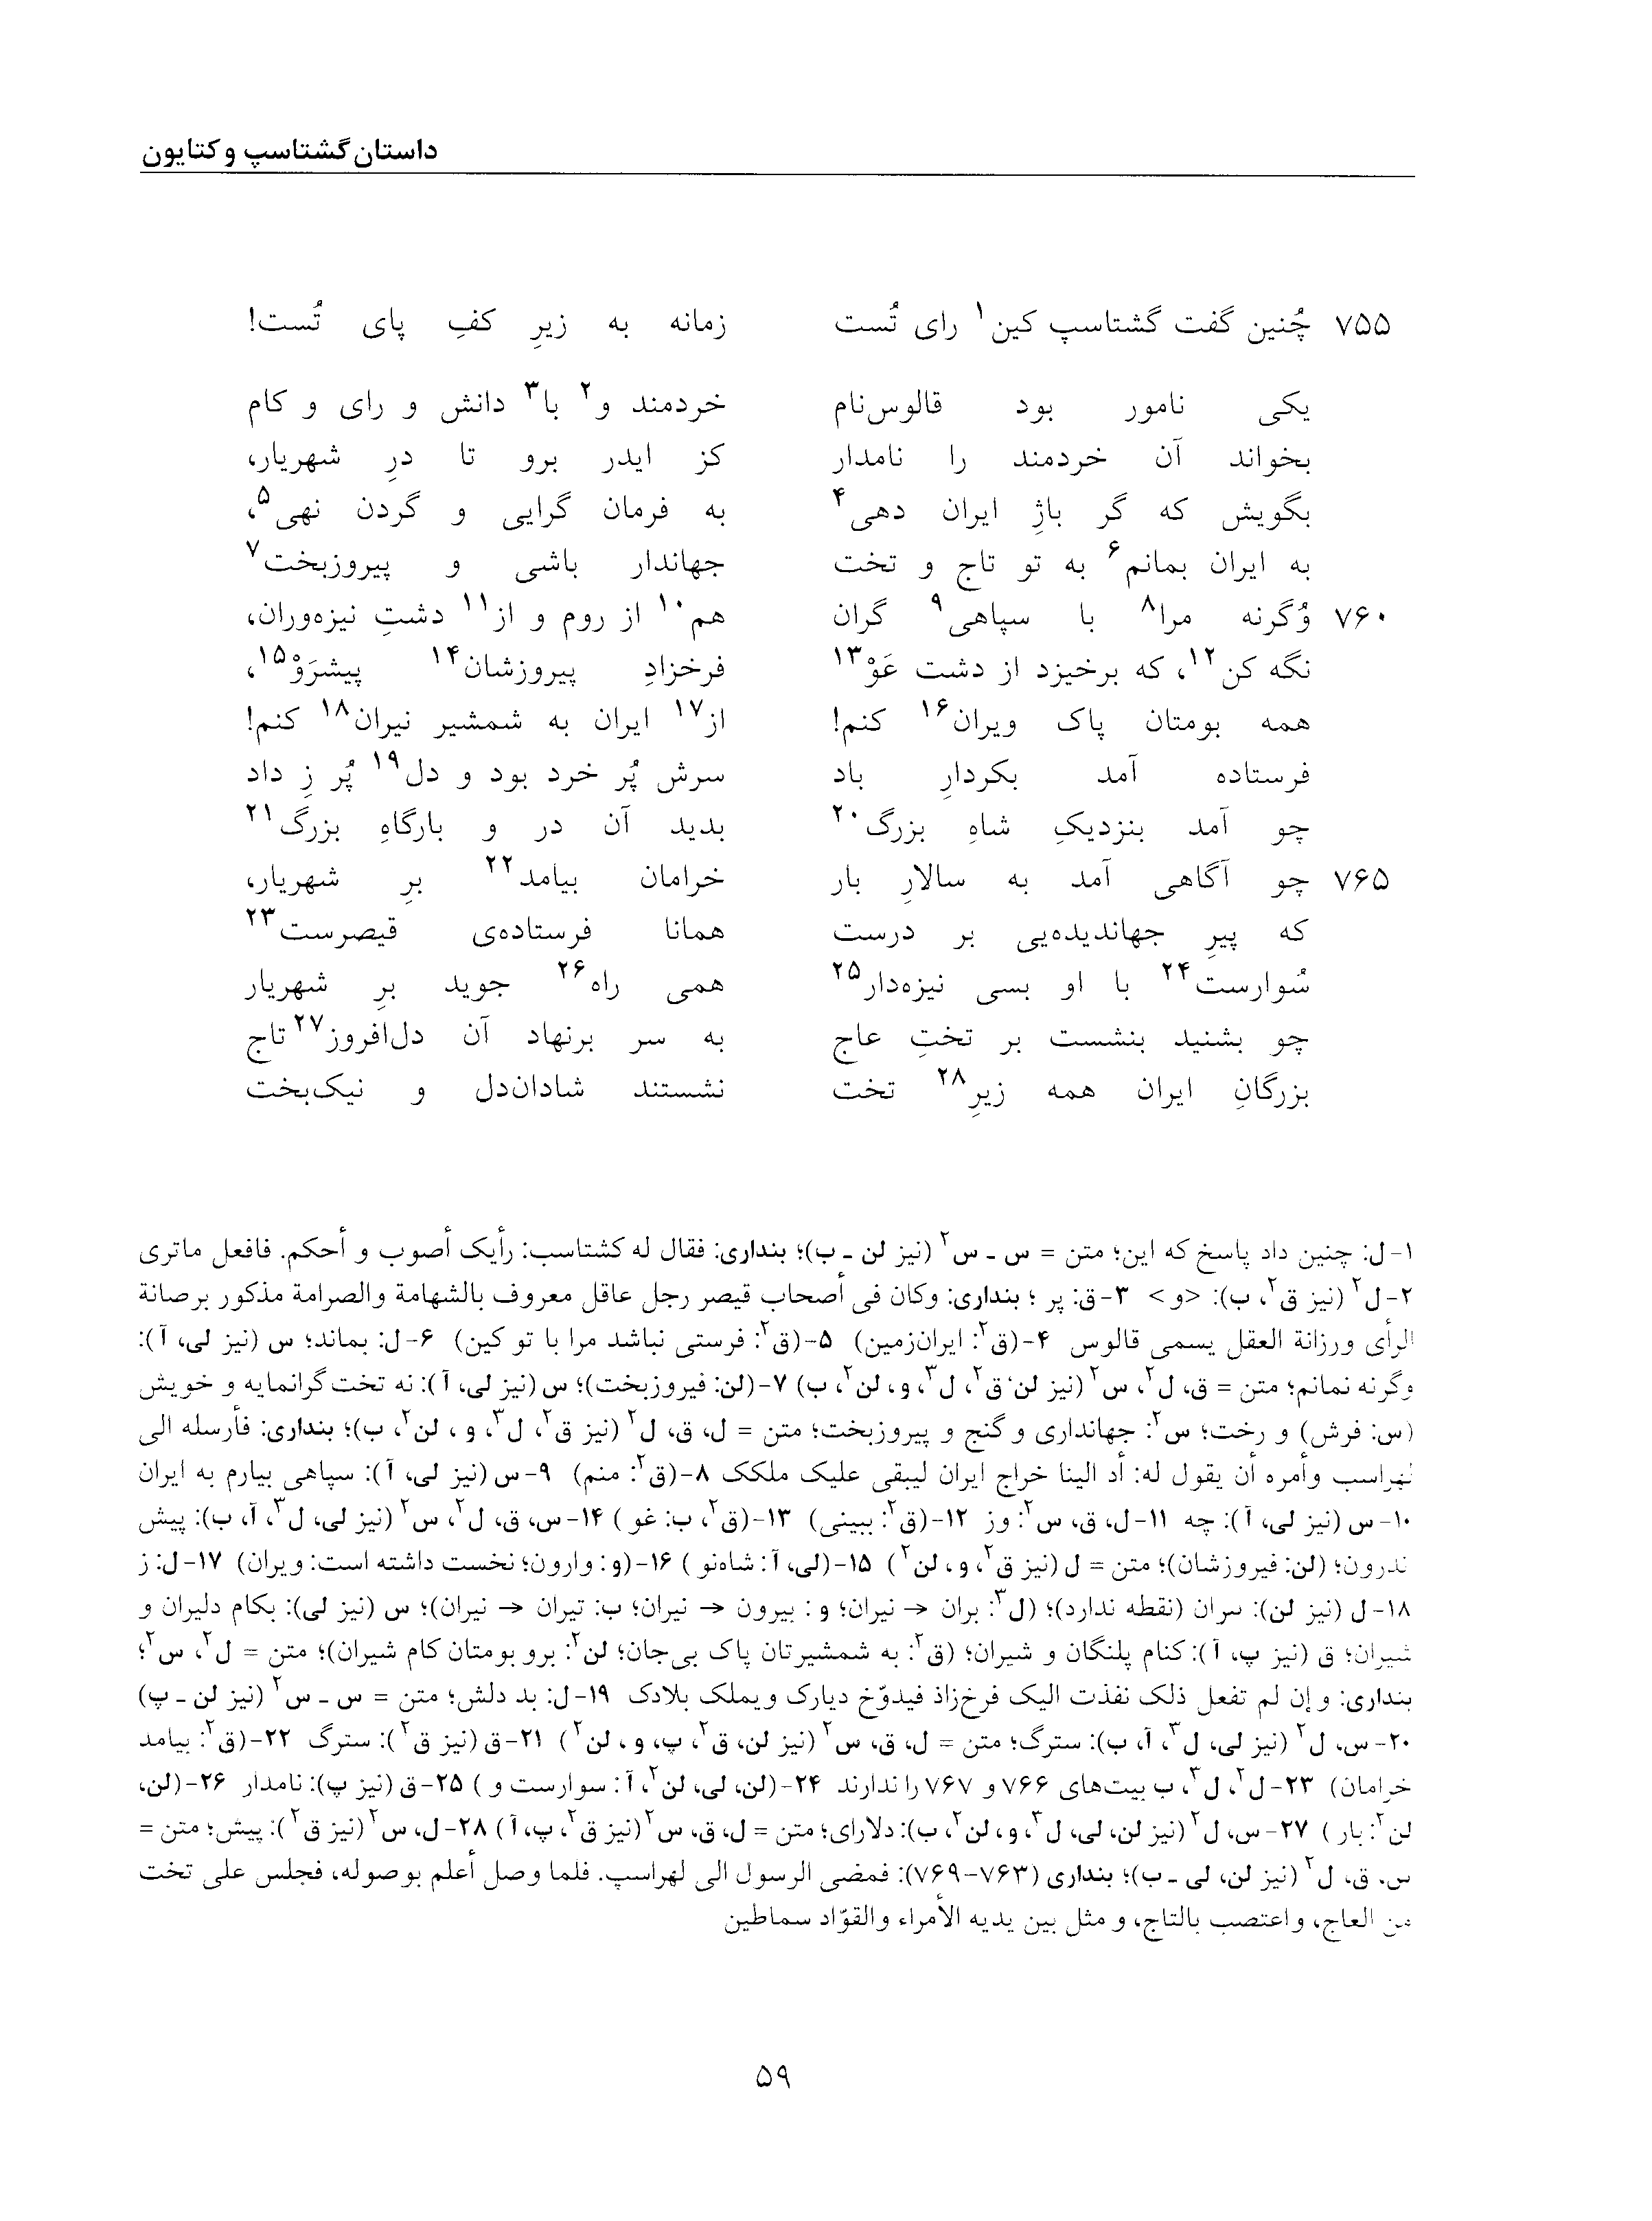 داستان گشتاسپ و کتایون
۷۵۵ چُنین گفت گشتاسپ کین۱ رای تُست زمانه به زیرِ کفِ پای تُست!
یکی نامور بود قالوس‌نام خردمند و۲ با۳ دانش و رای و کام
بخواند آن خردمند را نامدار کز ایدر برو تا درِ شهریار،
بگویش که گر باژِ ایران دهی۴ به فرمان گرایی و گردن نهی۵،
به ایران بمانم۶ به تو تاج و تخت جهاندار باشی و پیروزبخت۷
۷۶۰ وُگرنه مرا۸ با سپاهی۹ گران هم۱۰ از روم و از۱۱ دشتِ نیزه‌وران،
نگه کن۱۲، که برخیزد از دشت غَوْ۱۳ فرخزادِ پیروزشان۱۴ پیشرَوْ۱۵،
همه بومتان پاک ویران۱۶ کنم! از۱۷ ایران به شمشیر نیران۱۸ کنم!
فرستاده آمد بکردارِ باد سرش پُر خرد بود و دل۱۹ پُر زِ داد
چو آمد بنزدیکِ شاهِ بزرگ۲۰ بدید آن در و بارگاهِ بزرگ۲۱
۷۶۵ چو آگاهی آمد به سالارِ بار خرامان بیامد۲۲ برِ شهریار،
که پیرِ جهاندیده‌یی بر درست همانا فرستاده‌ی قیصرست۲۳
سُوارست۲۴ با او بسی نیزه‌دار۲۵ همی راه۲۶ جوید برِ شهریار
چو بشنید بنشست بر تختِ عاج به سر برنهاد آن دل‌افروز۲۷ تاج
بزرگانِ ایران همه زیرِ۲۸ تخت نشستند شادان‌دل و نیک‌بخت
۱-ل: چنین داد پاسخ که این؛ متن = س ـ س۲ (نیز لن ـ ب)؛ بنداری: فقال له کشتاسب: رأیک أصوب و أحکم. فافعل ماتری
۲-ل۲ (نیز ق۲، ب): <و> ۳-ق: پر ؛ بنداری: وکان فی أصحاب قیصر رجل عاقل معروف بالشهامة والصرامة مذکور برصانة
الرأی ورزانة العقل یسمی قالوس ۴-(ق۲: ایران‌زمین) ۵-(ق۲: فرستی نباشد مرا با تو کین) ۶-ل: بماند؛ س (نیز لی، آ):
وگرنه نمانم؛ متن = ق، ل۲، س۲ (نیز لن، ق۲، ل۳، و، لن۲، ب) ۷-(لن: فیروزبخت)؛ س (نیز لی، آ): نه تخت گرانمایه و خویش
(س: فرش) و رخت؛ س۲: جهانداری و گنج و پیروزبخت؛ متن = ل، ق، ل۲ (نیز ق۲، ل۳، و ، لن۲، ب)؛ بنداری: فأرسله الی
لهراسب وأمره أن یقول له: أد الینا خراج ایران لیبقی علیک ملکک ۸-(ق۲: منم) ۹-س (نیز لی، آ): سپاهی بیارم به ایران
۱۰-س (نیز لی، آ): چه ۱۱-ل، ق، س۲: وز ۱۲-(ق۲: ببینی) ۱۳-(ق۲، ب: غو ) ۱۴-س، ق، ل۲، س۲ (نیز لی، ل۳، آ، ب): پیش
ندرون؛ (لن: فیروزشان)؛ متن = ل (نیز ق۲، و ، لن۲) ۱۵-(لی، آ: شاه‌نو ) ۱۶-(و: وارون؛ نخست داشته است: ویران) ۱۷-ل: ز
۱۸-ل (نیز لن): سران (نقطه ندارد)؛ (ل۳: بران → نیران؛ و : بیرون → نیران؛ ب: تیران → نیران)؛ س (نیز لی): بکام دلیران و
شیران؛ ق (نیز پ، آ): کنام پلنگان و شیران؛ (ق۲: به شمشیرتان پاک بی‌جان؛ لن۲: برو بومتان کام شیران)؛ متن = ل۲، س۲؛
بنداری: و إن لم تفعل ذلک نفذت الیک فرخ‌زاذ فیدوّخ دیارک ویملک بلادک ۱۹-ل: بد دلش؛ متن = س ـ س۲ (نیز لن ـ پ)
۲۰-س، ل۲ (نیز لی، ل۳، آ، ب): سترگ؛ متن = ل، ق، س۲ (نیز لن، ق۲، پ، و ، لن۲) ۲۱-ق (نیز ق۲): سترگ ۲۲-(ق۲: بیامد
خرامان) ۲۳-ل۲، ل۳، ب بیت‌های ۷۶۶ و ۷۶۷ را ندارند ۲۴-(لن، لی، لن۲، آ: سوارست و ) ۲۵-ق (نیز پ): نامدار ۲۶-(لن،
لن۲: بار ) ۲۷-س، ل۲ (نیز لن، لی، ل۳، و، لن۲، ب): دلارای؛ متن = ل، ق، س۲ (نیز ق۲، پ، آ) ۲۸-ل، س۲ (نیز ق۲): پیش؛ متن =
س، ق، ل۲ (نیز لن، لی ـ ب)؛ بنداری (۷۶۳-۷۶۹): فمضی الرسول الی لهراسپ. فلما وصل أعلم بوصوله، فجلس علی تخت
من العاج، و اعتصب بالتاج، و مثل بین یدیه الأمراء والقوّاد سماطین
۵۹